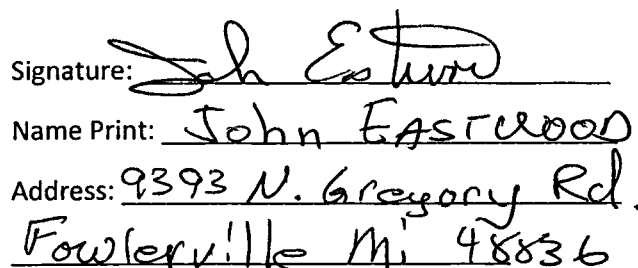 Signature: John Eastwood
Name Print: John EASTWOOD
Address: 9393 N. Gregory Rd.
Fowlerville Mi 48836